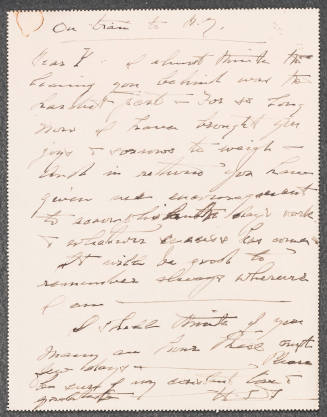 On train to N.Y.
Dear K - I almost think the
leaving you behind was the
hardest part - For so long
now I have brought you
joys & sorrows to weigh -
and in return you have
given me encouragement
to each day's work
& whatever success has come
It will be good to
remember always wherever
I am
I shall think of you
many an hour these next
days - Please
be sure of my constant love &
gratitude